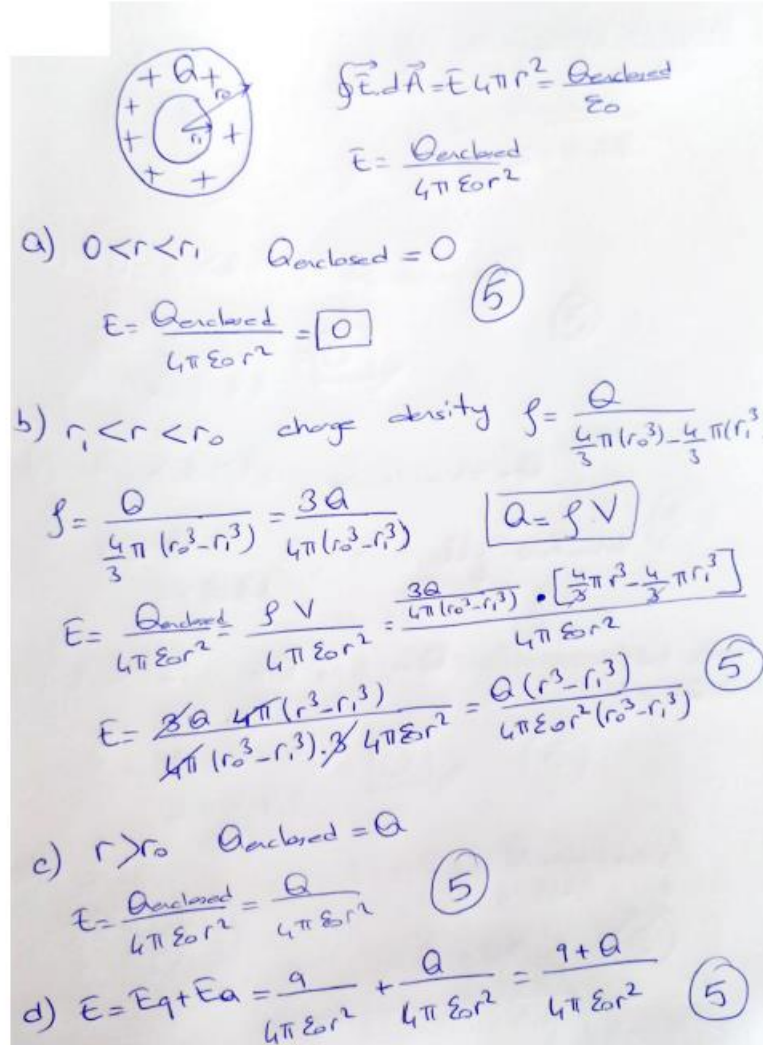 + Q +
r₀
+ +
+ r₁ +
+ +
+
∮E⃗.dA⃗ = E 4πr² = Qenclosed / ε₀
E = Qenclosed / 4π ε₀ r²
a) 0 < r < r₁ Qenclosed = 0
E = Qenclosed / 4π ε₀ r² = 0
5
b) r₁ < r < r₀ charge density ρ = Q / 4/3 π(r₀³) - 4/3 π(r₁³
ρ = Q / 4/3 π (r₀³ - r₁³) = 3Q / 4π(r₀³ - r₁³) Q = ρ V
E = Qenclosed / 4π ε₀ r² = ρ V / 4π ε₀ r² = 3Q / 4π(r₀³ - r₁³) • [4/3 πr³ - 4/3 πr₁³] / 4π ε₀ r²
E = 3Q 4π(r³ - r₁³) / 4π (r₀³ - r₁³).3 4π ε₀ r² = Q (r³ - r₁³) / 4π ε₀ r² (r₀³ - r₁³)
5
c) r > r₀ Qenclosed = Q
E = Qenclosed / 4π ε₀ r² = Q / 4π ε₀ r²
5
d) E = Eq + EQ = q / 4π ε₀ r² + Q / 4π ε₀ r² = q + Q / 4π ε₀ r²
5